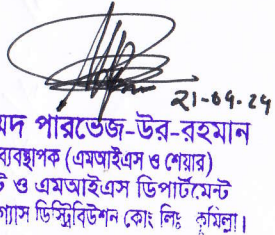 21-04-24
মদ পারভেজ-উর-রহমান
ব্যবস্থাপক (এমআইএস ও শেয়ার)
ট ও এমআইএস ডিপার্টমেন্ট
গ্যাস ডিস্ট্রিবিউশন কোং লিঃ কুমিল্লা।